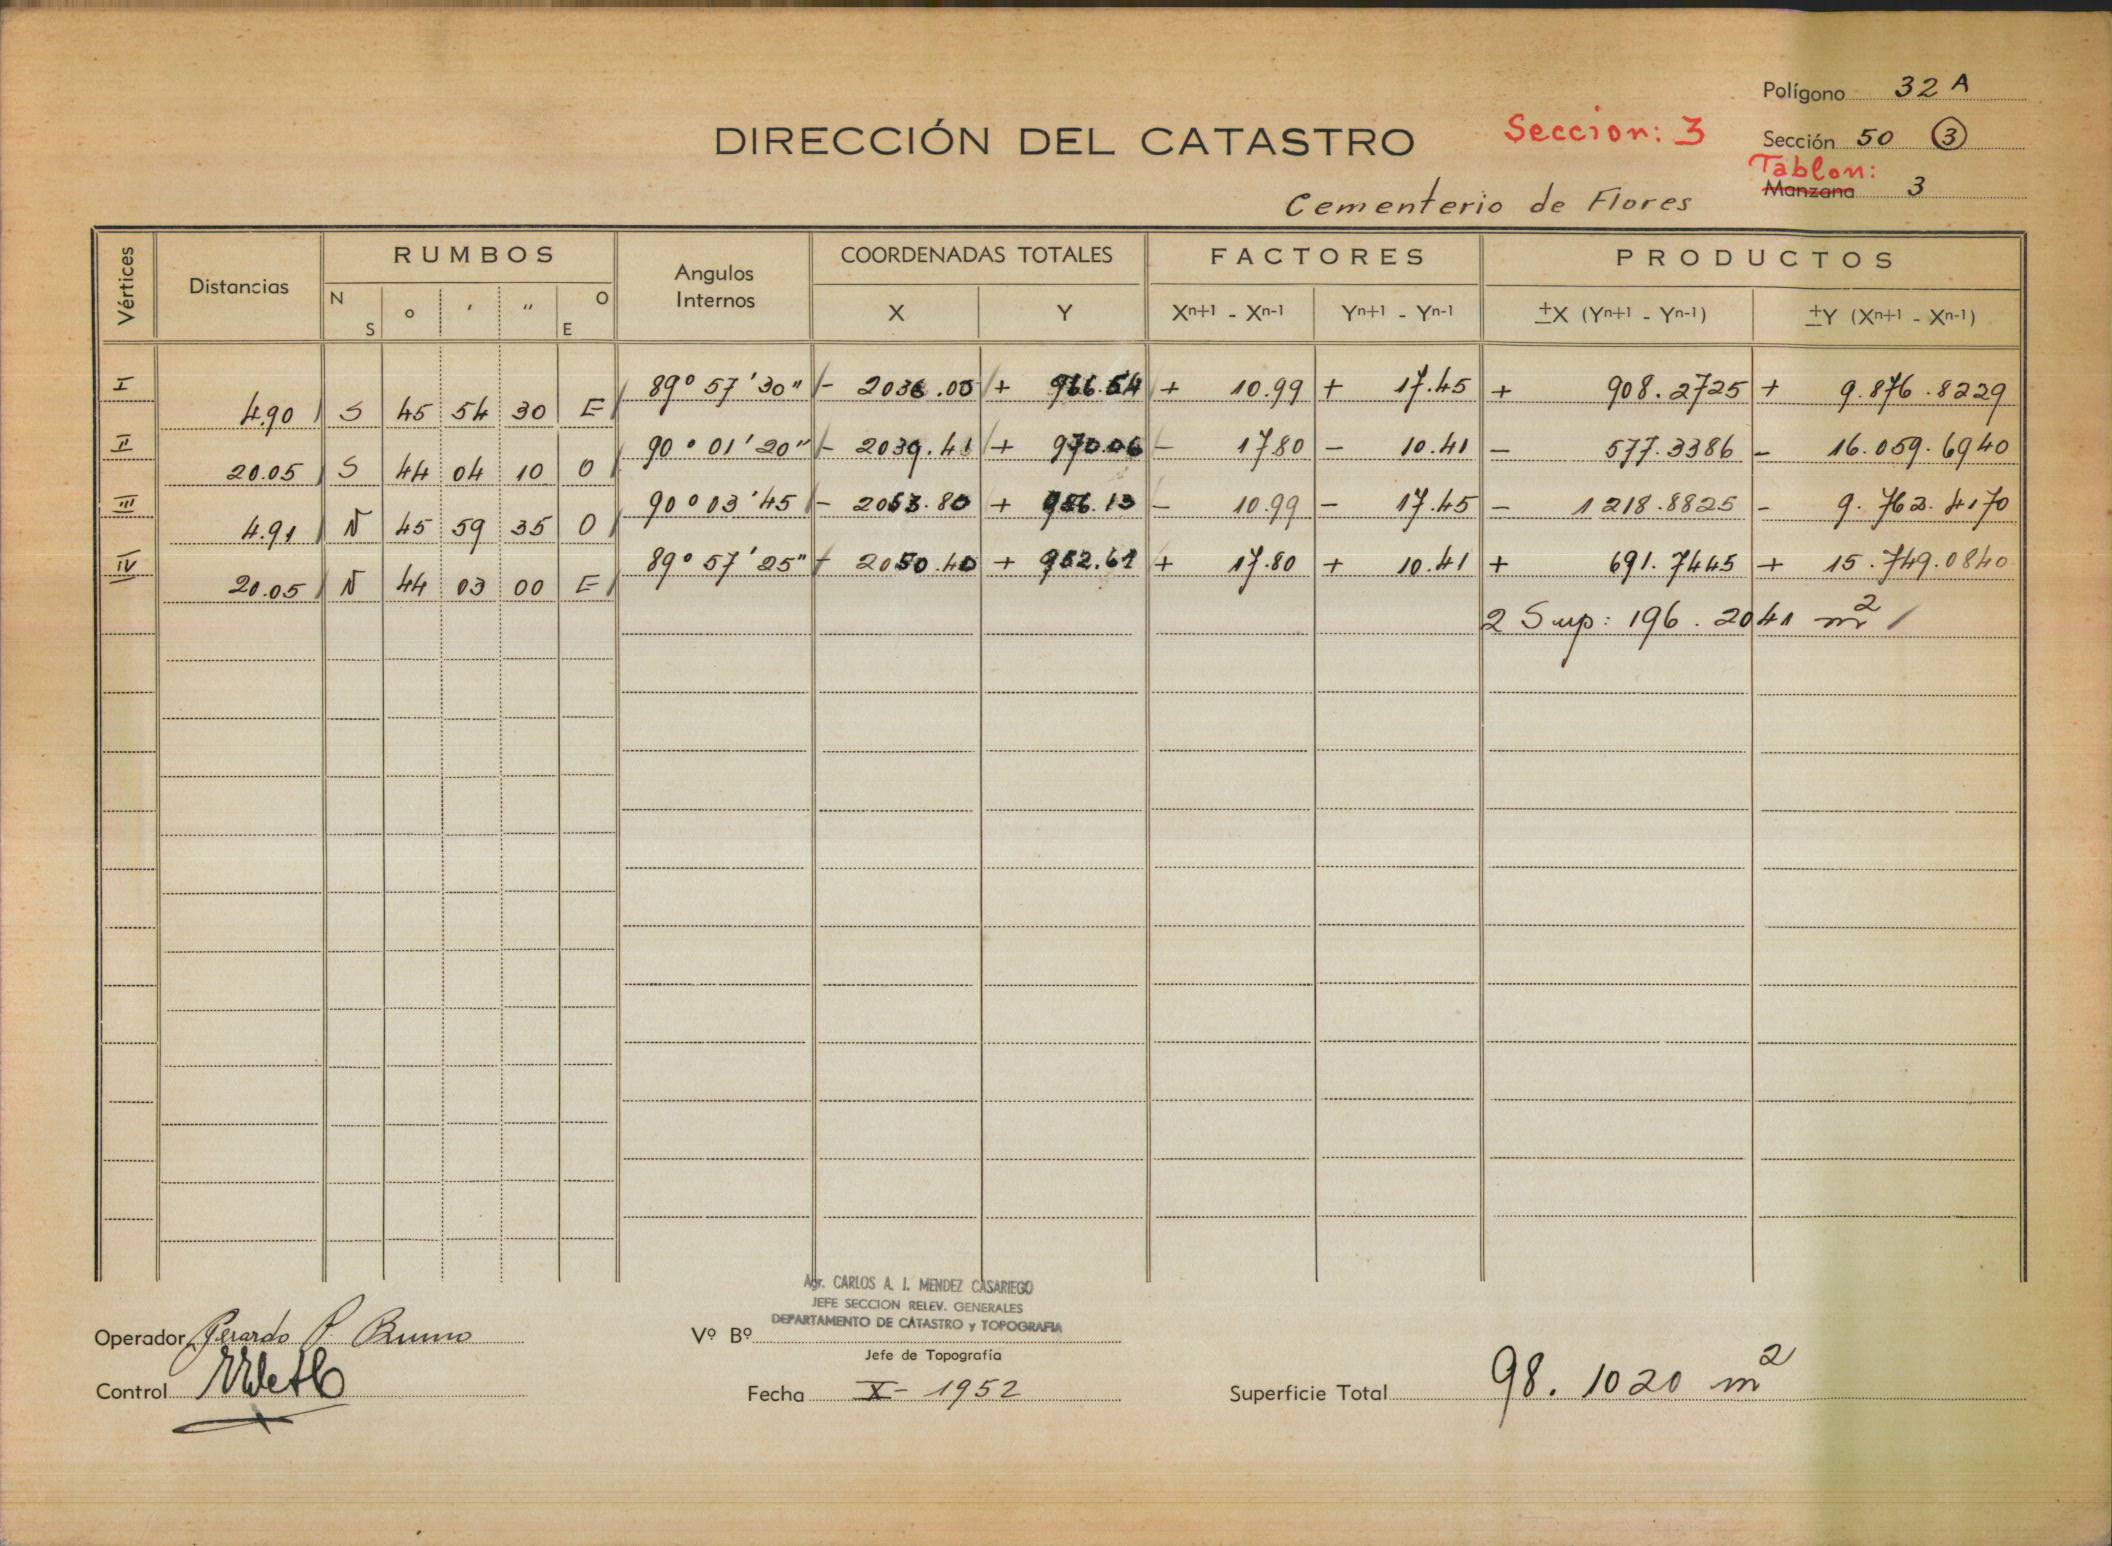 Polígono 32 A
DIRECCIÓN DEL CATASTRO
Seccion: 3
Sección 50 3
Tablon:
Manzana 3
Cementerio de Flores
Vértices Distancias RUMBOS Angulos Internos COORDENADAS TOTALES FACTORES PRODUCTOS
N S ° ' " O E X Y Xn+1 - Xn-1 Yn+1 - Yn-1 ±X (Yn+1 - Yn-1) ±Y (Xn+1 - Xn-1)
I 89° 57' 30" - 2036.00 + 966.54 + 10.99 + 17.45 + 908.2725 + 9.876.8229
4.90 S 45 54 30 E
II 90° 01' 20" - 2039.41 + 970.06 - 17.80 - 10.41 - 577.3386 - 16.059.6940
20.05 S 44 04 10 O
III 90° 03' 45 - 2053.80 + 956.13 - 10.99 - 17.45 - 1218.8825 - 9.762.4170
4.91 N 45 59 35 O
IV 89° 57' 25" - 2050.40 + 952.61 + 17.80 + 10.41 + 691.7445 + 15.749.0840
20.05 N 44 03 00 E
2 Sup: 196.2041 m2
Agr. CARLOS A. I. MENDEZ CASARIEGO
JEFE SECCION RELEV. GENERALES
DEPARTAMENTO DE CATASTRO y TOPOGRAFIA
Operador Gerardo P. Bruno
Vº Bº
Jefe de Topografía
Control
Fecha X - 1952
Superficie Total 98.1020 m2